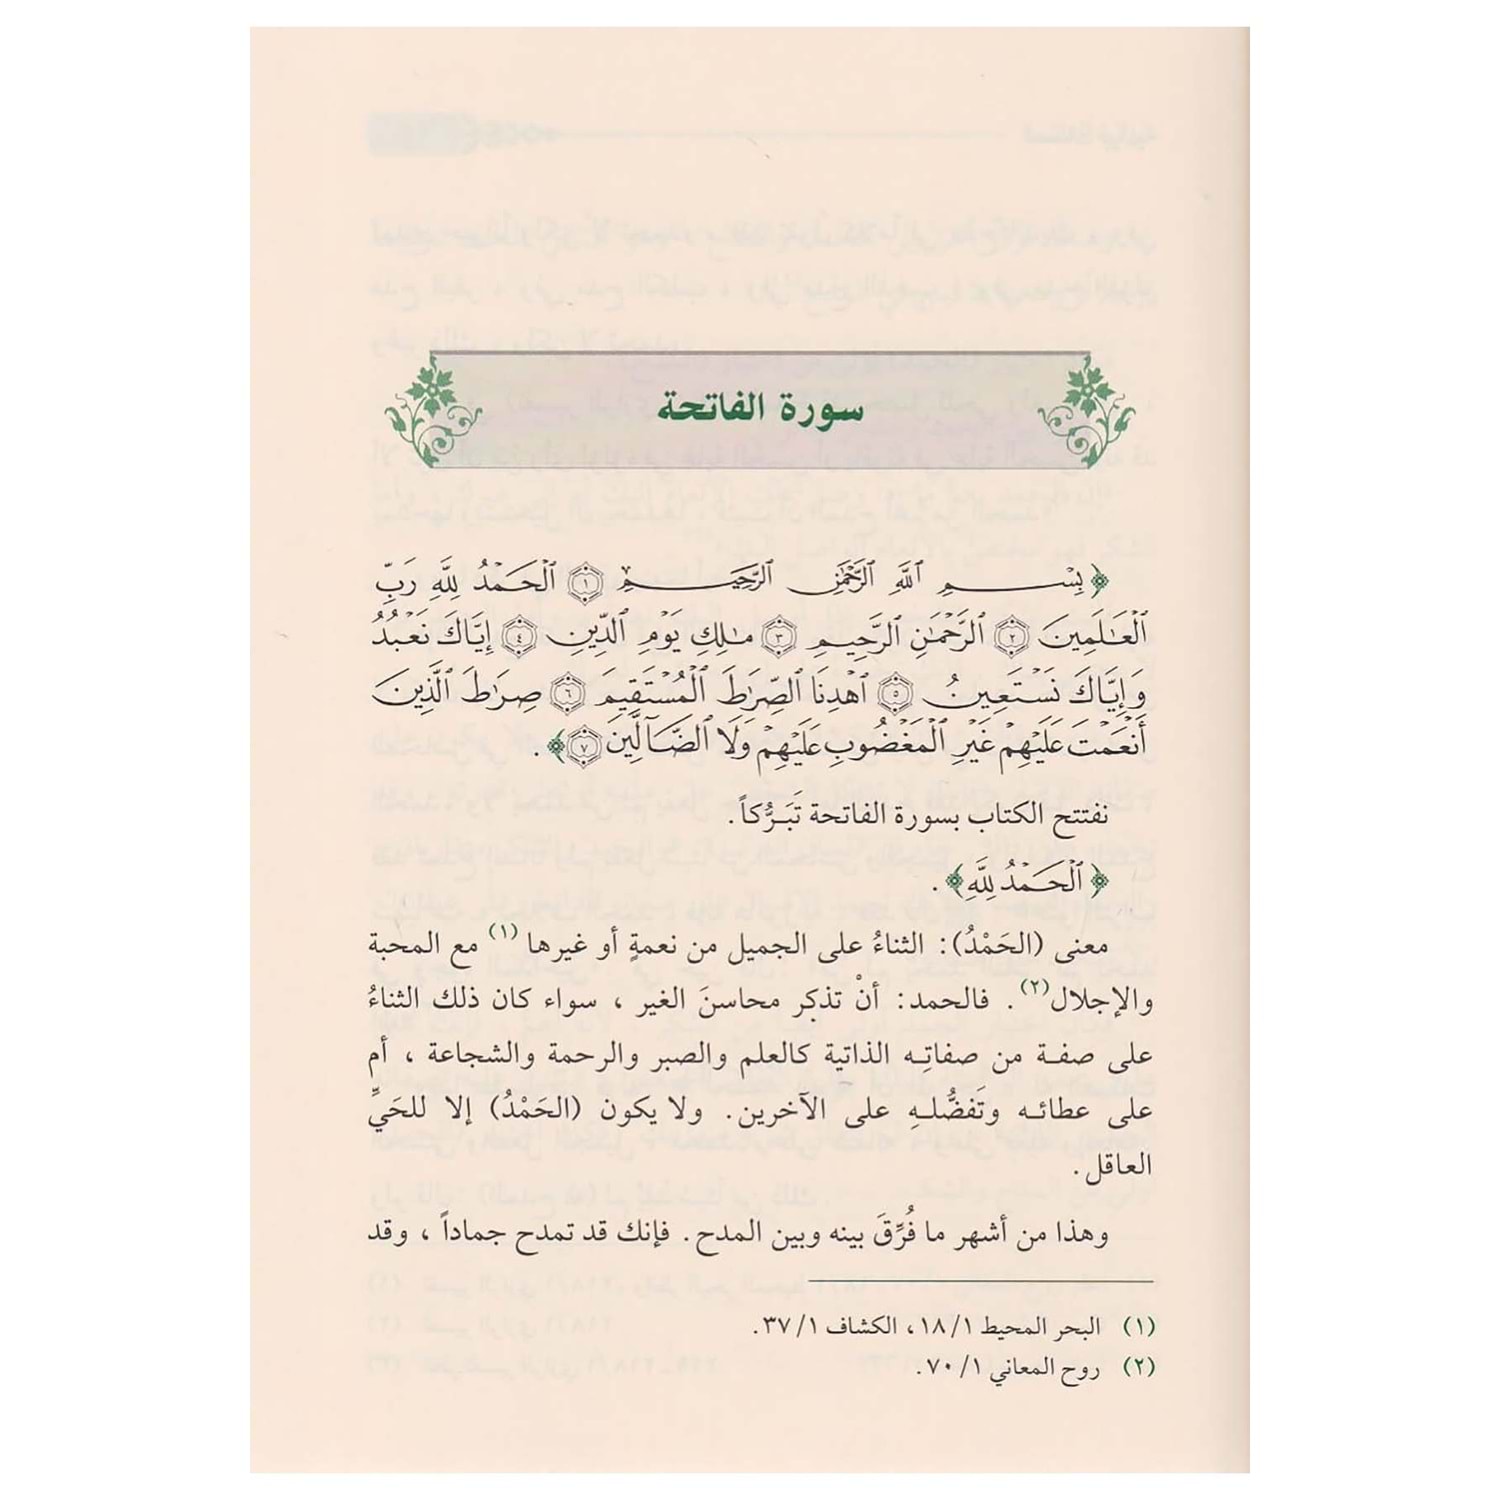 سورة الفاتحة
﴿بِسْمِ ٱللَّهِ ٱلرَّحْمَٰنِ ٱلرَّحِيمِ ۝١ ٱلْحَمْدُ لِلَّهِ رَبِّ
ٱلْعَٰلَمِينَ ۝٢ ٱلرَّحْمَٰنِ ٱلرَّحِيمِ ۝٣ مَٰلِكِ يَوْمِ ٱلدِّينِ ۝٤ إِيَّاكَ نَعْبُدُ
وَإِيَّاكَ نَسْتَعِينُ ۝٥ ٱهْدِنَا ٱلصِّرَٰطَ ٱلْمُسْتَقِيمَ ۝٦ صِرَٰطَ ٱلَّذِينَ
أَنْعَمْتَ عَلَيْهِمْ غَيْرِ ٱلْمَغْضُوبِ عَلَيْهِمْ وَلَا ٱلضَّآلِّينَ ۝٧﴾.
نفتتح الكتاب بسورة الفاتحة تَبَرُّكاً.
﴿ٱلْحَمْدُ لِلَّهِ﴾.
معنى (الحَمْدُ): الثناءُ على الجميل من نعمةٍ أو غيرها (١) مع المحبة
والإجلال(٢). فالحمد: أنْ تذكر محاسنَ الغير ، سواء كان ذلك الثناءُ
على صفة من صفاتِه الذاتية كالعلم والصبر والرحمة والشجاعة ، أم
على عطائه وتَفضُّلهِ على الآخرين. ولا يكون (الحَمْدُ) إلا للحَيِّ
العاقل.
وهذا من أشهر ما فُرِّقَ بينه وبين المدح. فإنك قد تمدح جماداً ، وقد
(١) البحر المحيط ١٨/١، الكشاف ٣٧/١.
(٢) روح المعاني ٧٠/١.